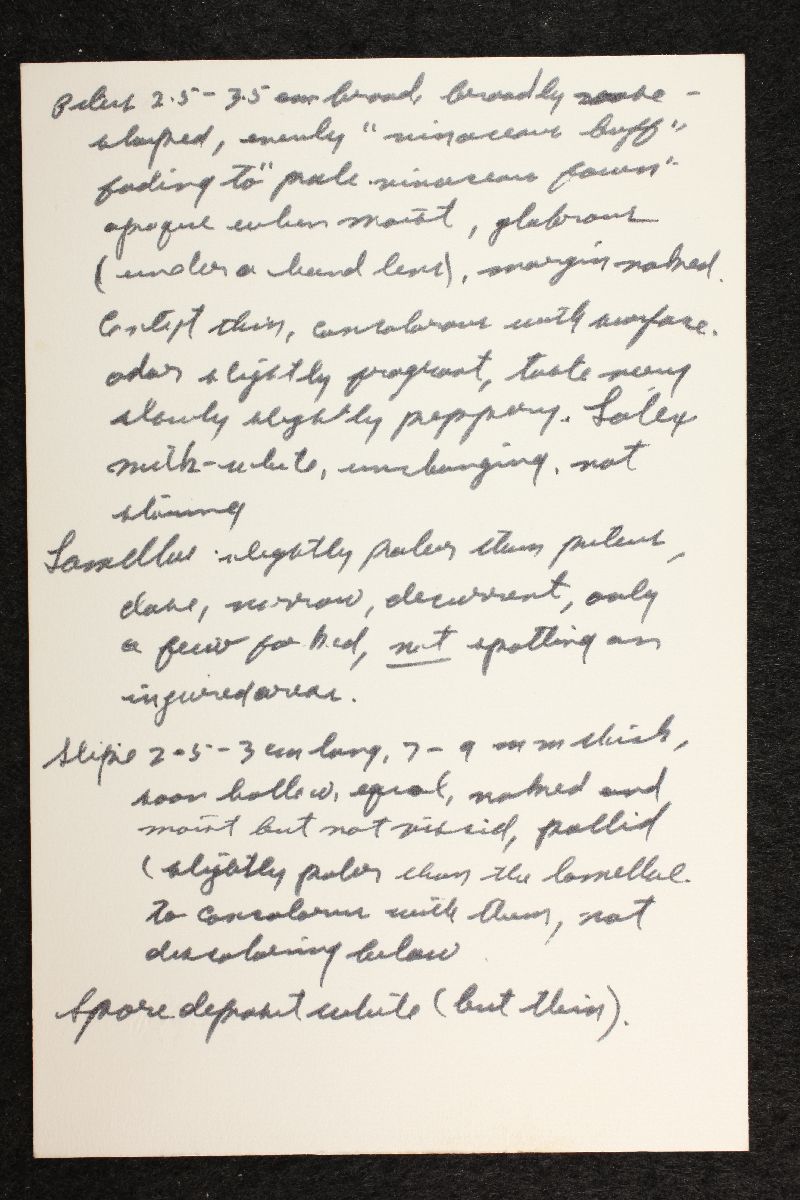 Pileus 2.5-3.5 cm broad, broadly vase-
shaped, evenly "vinaceous buff"
fading to "pale vinaceous fawn"
opaque when moist, glabrous
(under a hand lens), margin naked.
Context thin, concolorous with surface.
odor slightly fragrant, taste very
slowly slightly peppery. Latex
milk-white, unchanging, not
staining
Lamellae slightly paler than pileus,
close, narrow, decurrent, only
a few forked, not spotting on
injured areas.
Stipe 2.5-3 cm long, 7-9 mm thick,
soon hollow, equal, naked and
moist but not viscid, pallid
(slightly paler than the lamellae.
to concolorous with them, not
discoloring below
Spore deposit white (but thin).